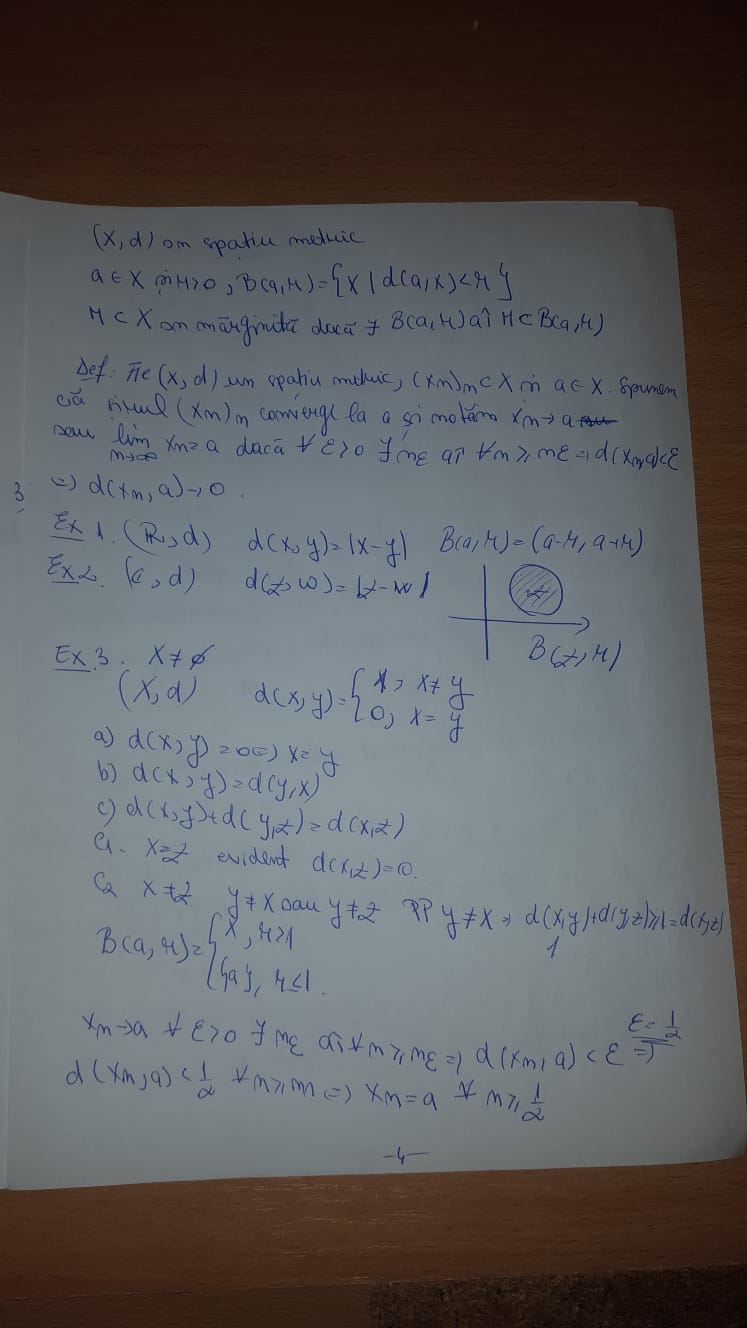 (X, d) un spațiu metric
a ∈ X și r>0, B(a,r)={x | d(a,x)<r}
M ⊂ X un mărginită dacă ∃ B(a,r) aî M⊂B(a,r)
Def: Fie (X,d) un spațiu metric, (xn)n⊂X și a∈X. Spunem
că șirul (xn)n converge la a și notăm xn→a
sau lim n→∞ xn=a dacă ∀ε>0 ∃nε aî ∀n≥nε ⇒ d(xn,a)<ε
3 ⇔ d(xn,a)→0.
Ex 1. (R,d) d(x,y)=|x-y| B(a,r)=(a-r, a+r)
Ex 2. (C,d) d(z,w)=|z-w|
z
B(z,r)
Ex 3. X≠∅
(X,d) d(x,y)={1, x≠y
0, x=y
a) d(x,y)=0⇔x=y
b) d(x,y)=d(y,x)
c) d(x,y)+d(y,z)≥d(x,z)
C1. x=z evident d(x,z)=0.
C2 x≠z y≠x sau y≠z PP y≠x ⇒ d(x,y)+d(y,z)≥1=d(x,z)
1
B(a,r)={X, r>1
{a}, r≤1.
xn→a ∀ε>0 ∃nε aî ∀n≥nε ⇒ d(xn,a)<ε ε=1/2 ⇒
d(xn,a)<1/2 ∀n≥n ⇒ xn=a ∀n≥1/2
-4-